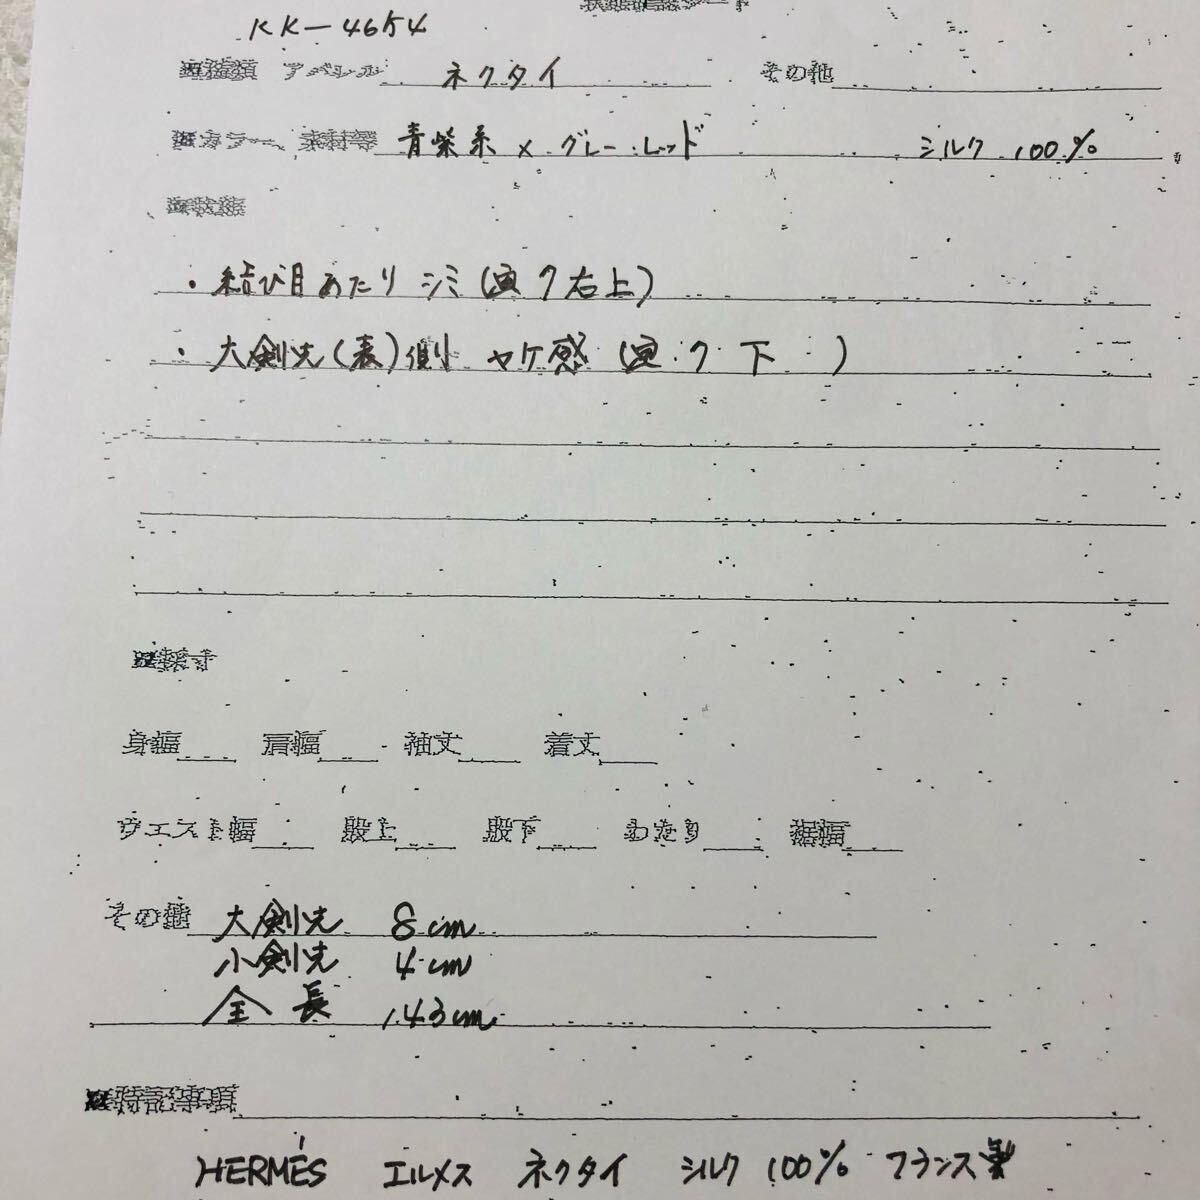 KK-4654
種類 アパレル ネクタイ その他
カラー、素材等 青紫系 × グレー・レッド シルク 100%
状態
・結び目あたり シミ(画 7 右上)
・大剣先(表)側 ヤケ感(画 7 下 )
採寸
身幅 肩幅 袖丈 着丈
ウエスト幅 股上 股下 わたり 裾幅
その他 大剣先 8cm
小剣先 4cm
全長 143cm
特記事項
HERMÉS エルメス ネクタイ シルク 100% フランス製